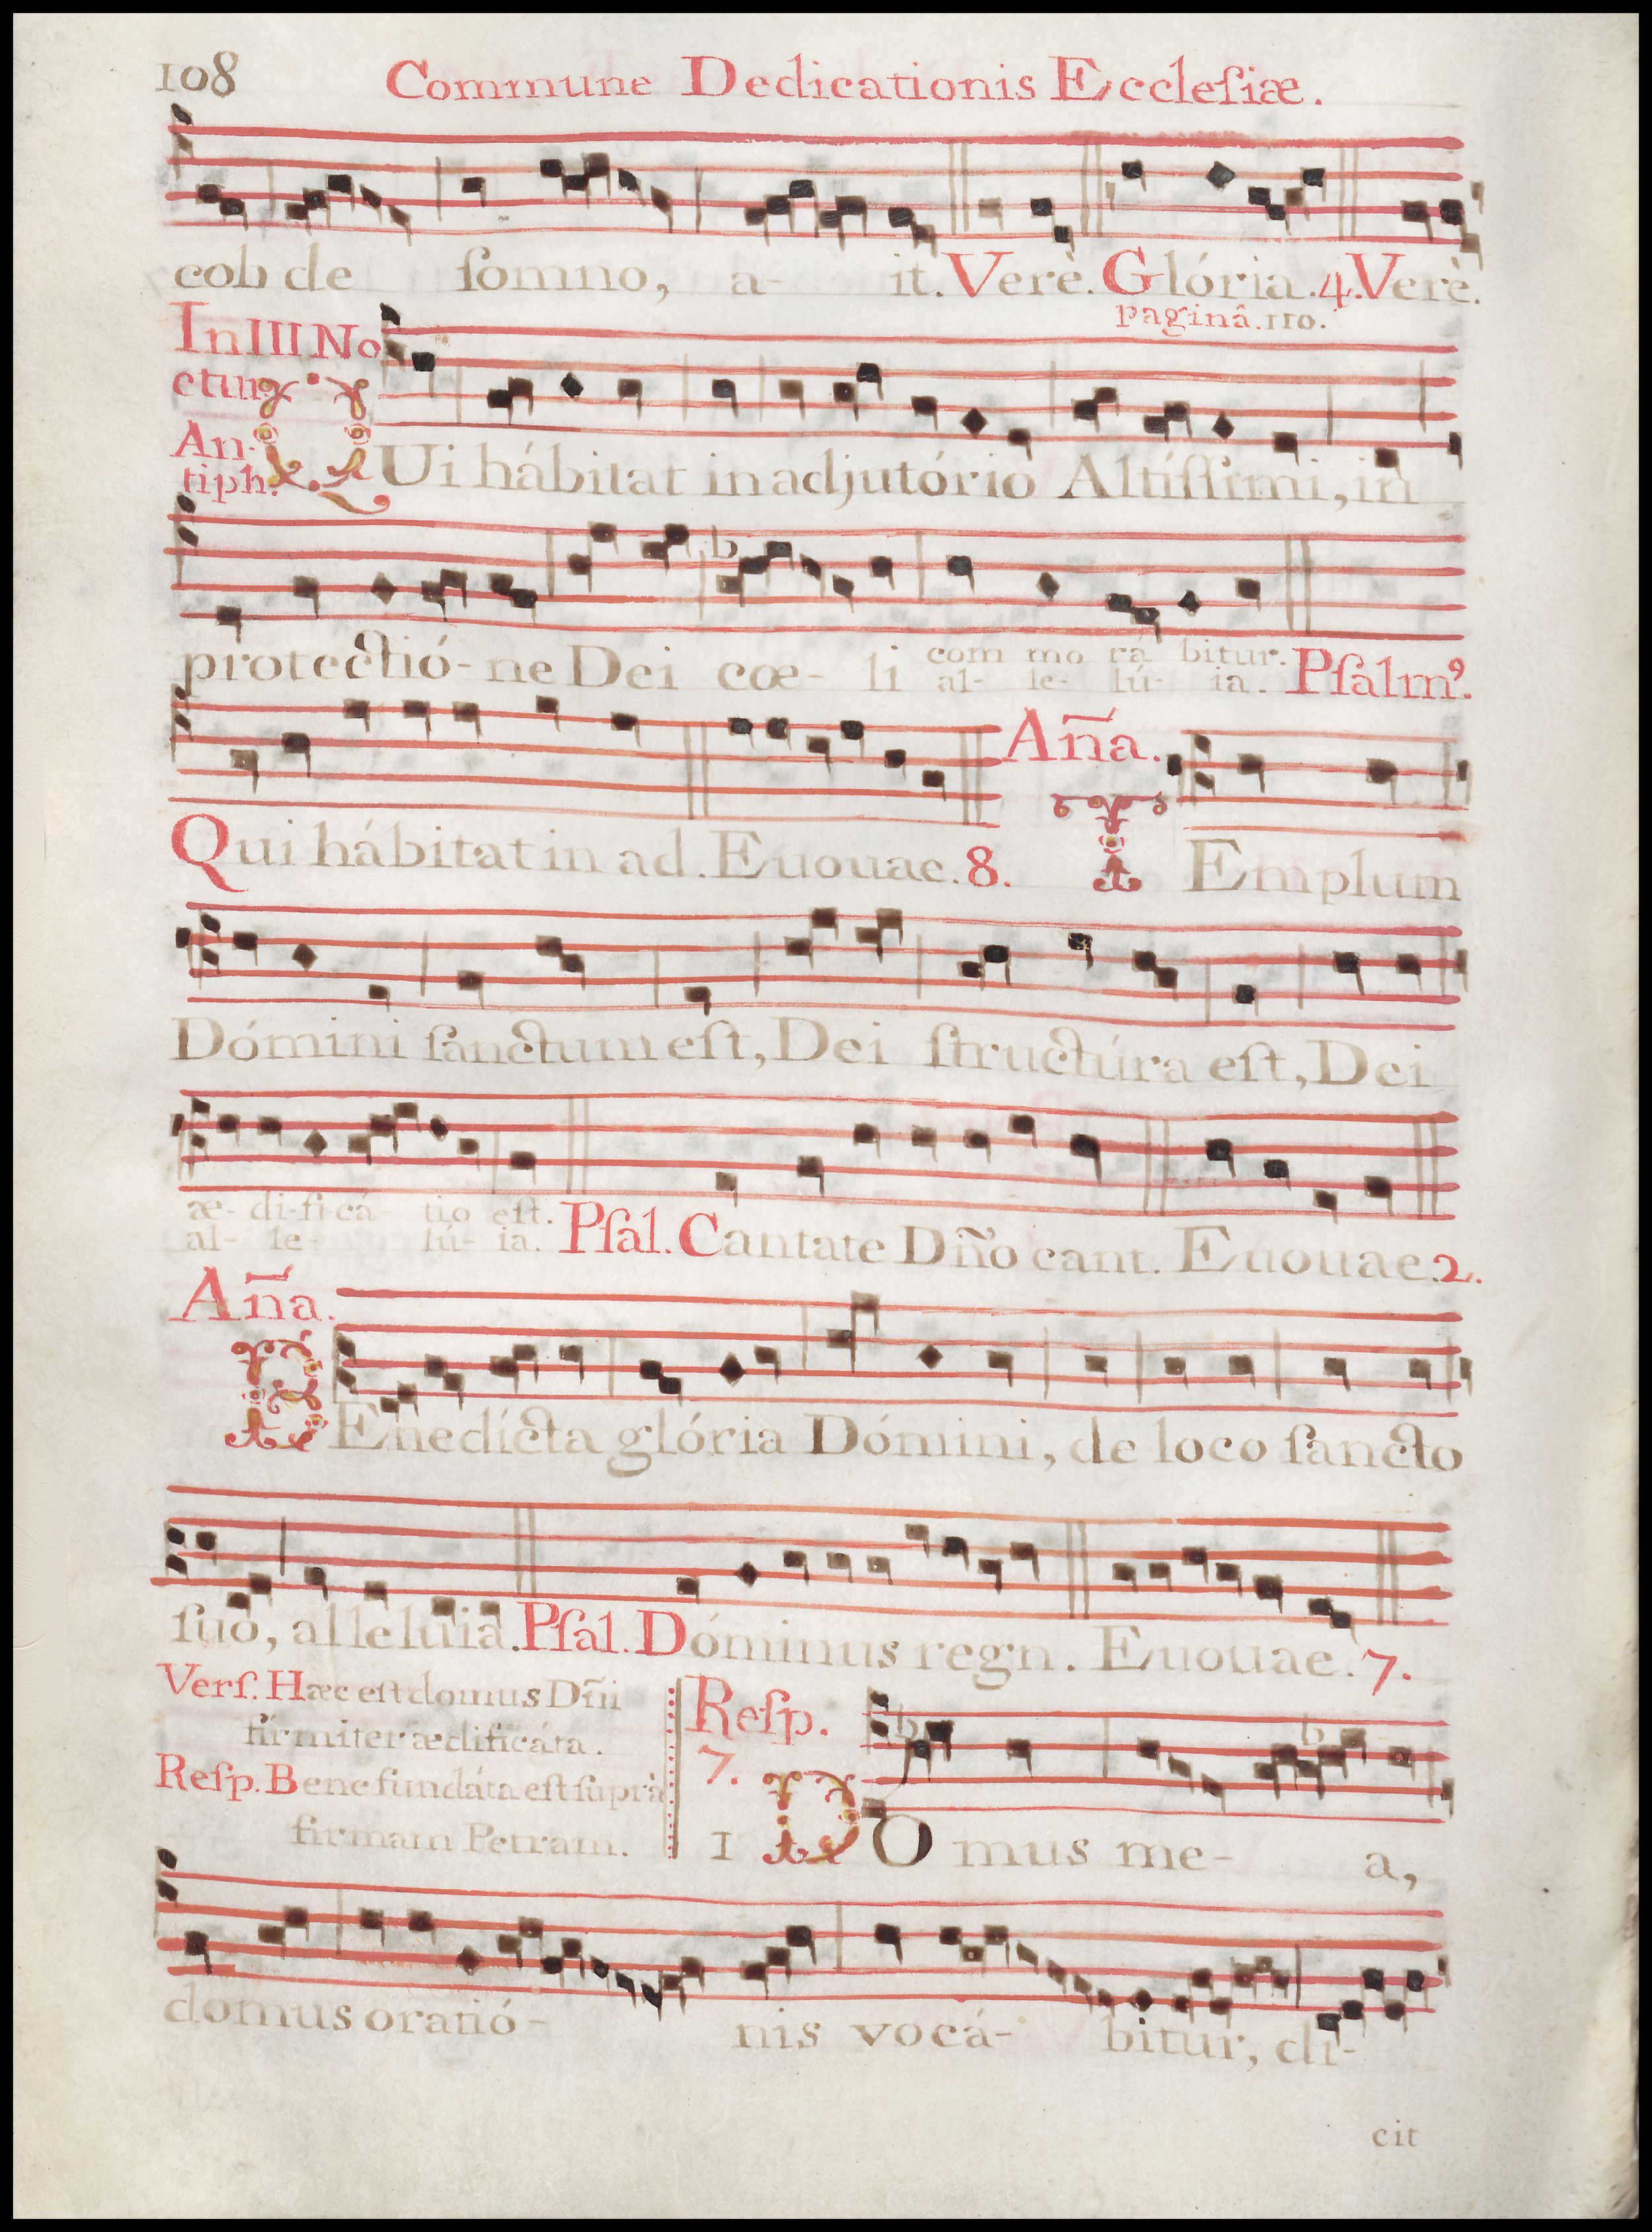 108 Commune Dedicationis Eccleſiæ.
cob de ſomno, a- it. Verè. Glória. 4. Verè.
paginâ. 110.
In III No
cturn.
An-
tiph.
QUi hábitat in adjutório Altíſſimi, in
protectió- ne Dei cœ- li com mo rá bitur. Pſalm⁹.
al- le- lú- ia.
Qui hábitat in ad. Euouae. 8. Aña. TEmplum
Dómini ſanctum eſt, Dei ſtructúra eſt, Dei
æ- di-fi-cá- tio eſt. Pſal. Cantate Dño cant. Euouae. 2.
al- le- lú- ia.
Aña.
BEnedícta glória Dómini, de loco ſancto
ſuo, alleluia. Pſal. Dóminus regn. Euouae. 7.
Verſ. Hæc eſt domus Dñi
fírmiter ædificáta.
Reſp. Bene fundáta eſt ſuprà
firmam Petram.
Reſp.
7.
1 DO mus me- a,
domus oratió- nis vocá- bitur, di-
cit